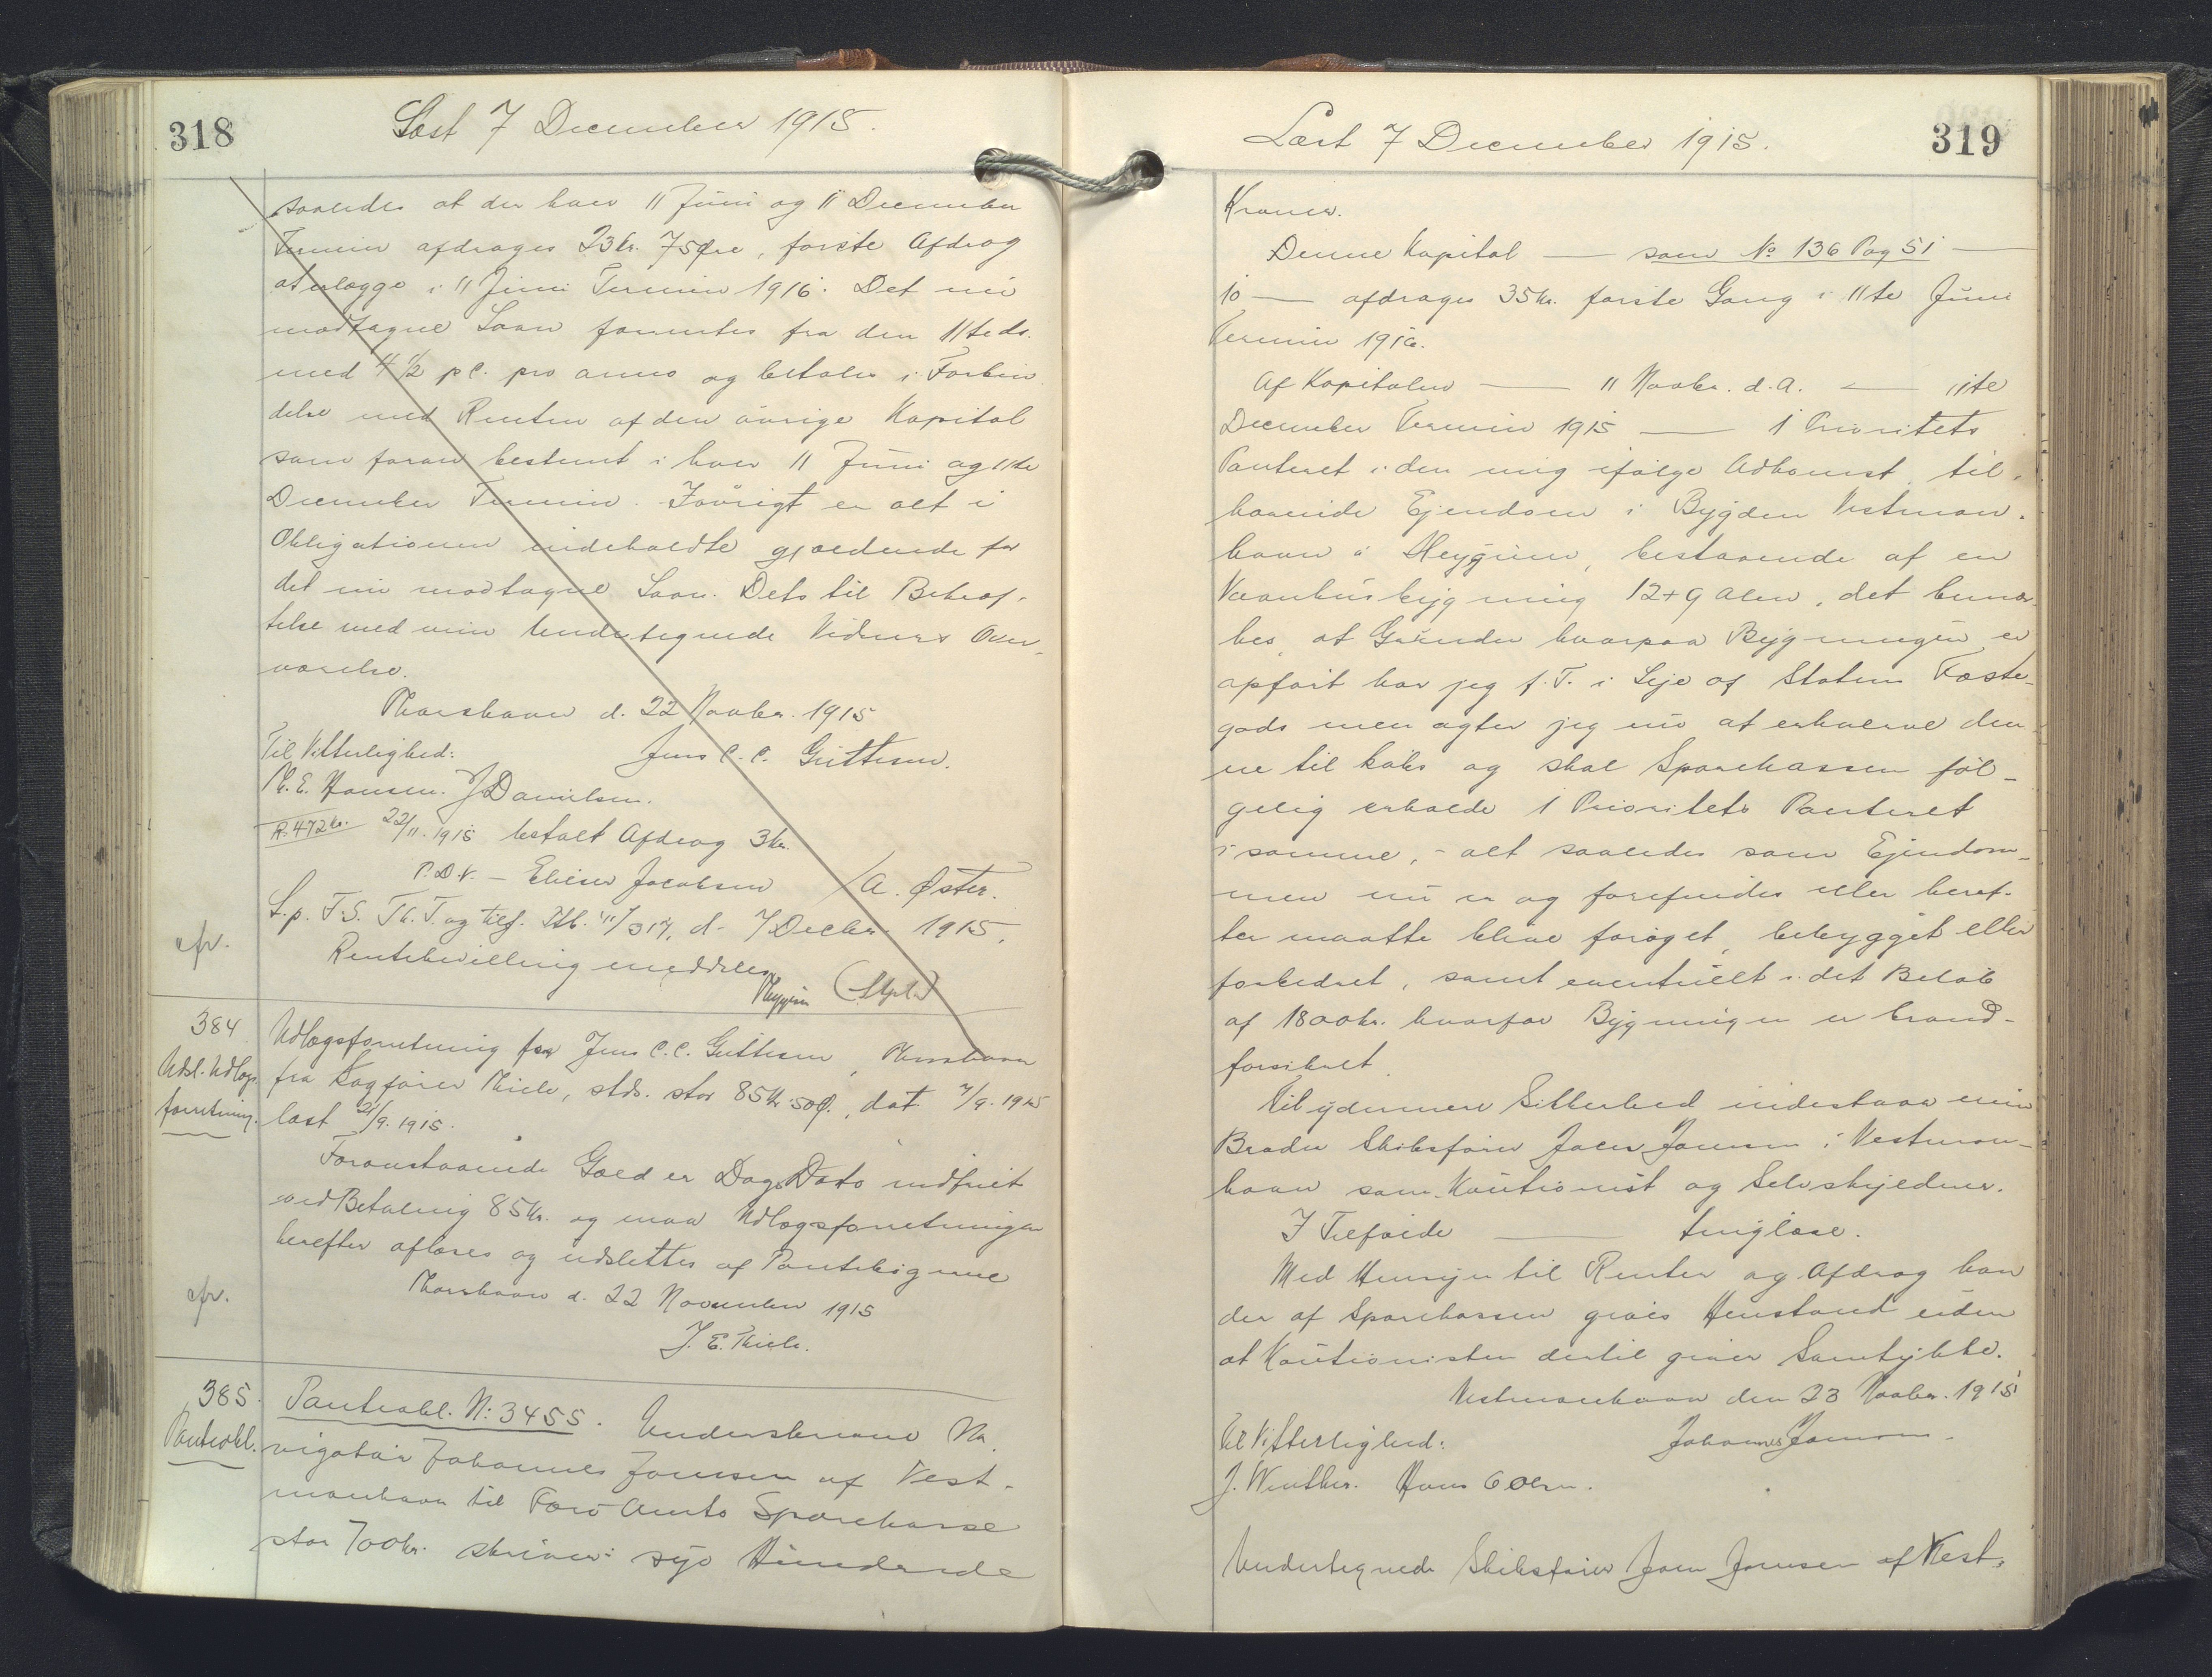 318
Læst 7 December 1915.
saaledes at der hver 11 Juni og 11 December
Termin afdrages 23 Kr. 75 Øre, første Afdrag
at erlægge i 11 Juni Termin 1916. Det nu
modtagne Laan forrentes fra den 11te ds.
med 4 1/2 pC. pro anno og betales i Forbin
delse med Renten af den øvrige Kapital
som foran bestemt i hver 11 Juni og 11te
December Termin. Iøvrigt er alt i
Obligationen indeholdte gjældende for
det nu modtagne Laan. Dets til Bekræf-
telse med min Undertegnede Vidners Over-
værelse.
Thorshavn d. 22 Novbr. 1915
Til Vitterlighed: Jens C. C. Guttesen.
M. E. Hansen. J Danielsen.
R. 472 kr. 22/11. 1915 betalt Afdrag 3 kr.
P.D.V. – Elieser Jacobsen / A. Øster.
L.p. F.S. Th. T. og tilf. Ptb. 4/317, d. 7 Decbr. 1915.
Rentebevilling meddeles
(Stpl.)
cfr.
384
Udsl. Udlægs
forretning.
Udlægsforretning for Jens C. C. Guttesen, Thorshavn
fra Sagfører Thiele, stds. stor 85 Kr. 50 Ø., dat. 7/9. 1915
læst 21/9. 1915.
Foranstaaende Gæld er Dags Dato indfriet
ved Betaling 85 Kr. og maa Udlægsforretningen
herefter aflæses og udslettes af Pantebøgerne
Thorshavn d. 22 November 1915
J. E. Thiele.
cfr.
385.
Panteobl.
Panteobl. N: 3455. Underskrevne Na
vigatør Johannes Joensen af Vest-
manhavn til Færø Amts Sparekasse
stor 700 kr. skriver: syv Hundrede
319
Læst 7 December 1915.
Kroner.
Denne Kapital — som No 136 Pag 51 —
10 — afdrages 35 kr. første Gang i 11te Juni
Termin 1916.
Af Kapitalen — 11 Novbr. d. A. — 11te
December Termin 1915 — 1 Prioritets
Panteret i den mig ifølge Adkomst til-
hørende Ejendom i Bygden Vestman-
havn i Heygum, bestaaende af en
Vaanhusbygning 12 + 9 Alen, det bemær
kes, at Grunden hvorpaa Bygningen er
opført har jeg f. T. i Leje af Statens Fæste-
gods men agter jeg nu at erhverve den-
ne til Købs og skal Sparekassen føl-
gelig erholde 1 Prioritets Panteret
i samme, – alt saaledes som Ejendom-
men nu er og forefindes eller heref-
ter maatte blive forøget, bebygget eller
forbedret, samt eventuelt i det Beløb
af 1800 kr. hvorfor Bygningen er brand-
forsikret.
Til ydermere Sikkerhed indestaar min
Broder Skibsfører Joen Joensen i Vestman-
havn som Kautionist og Selvskyldner.
I Tilfælde — tinglæse.
Med Hensyn til Renter og Afdrag kan
der af Sparekassen gives Henstand uden
at Kautionisten dertil giver Samtykke.
Vestmanhavn den 23 Novbr. 1915
Til Vitterlighed: Johannes Joensen.
J. Winther. Hans 6 Olsen.
Undertegnede Skibsfører Joen Joensen af Vest-